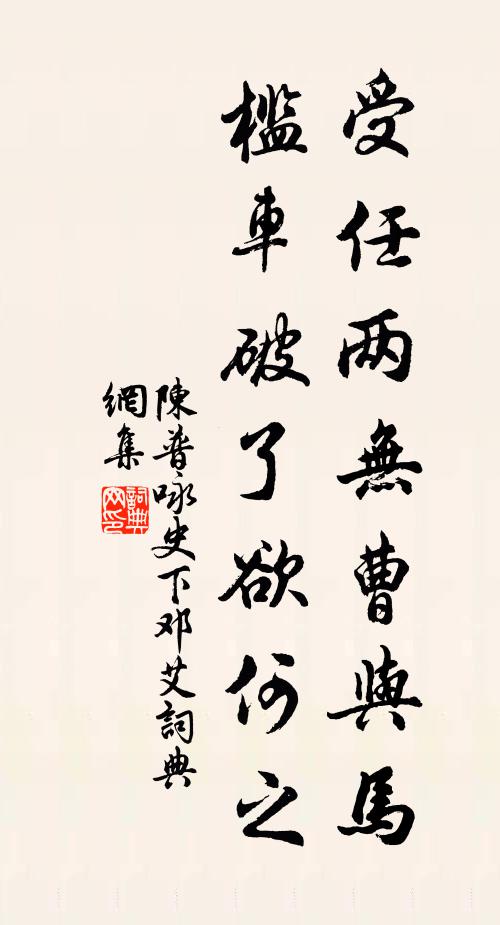 受任两無曹與馬
檻車破了欲何之
陳普咏史下邓艾詞典
網集
詞典網印